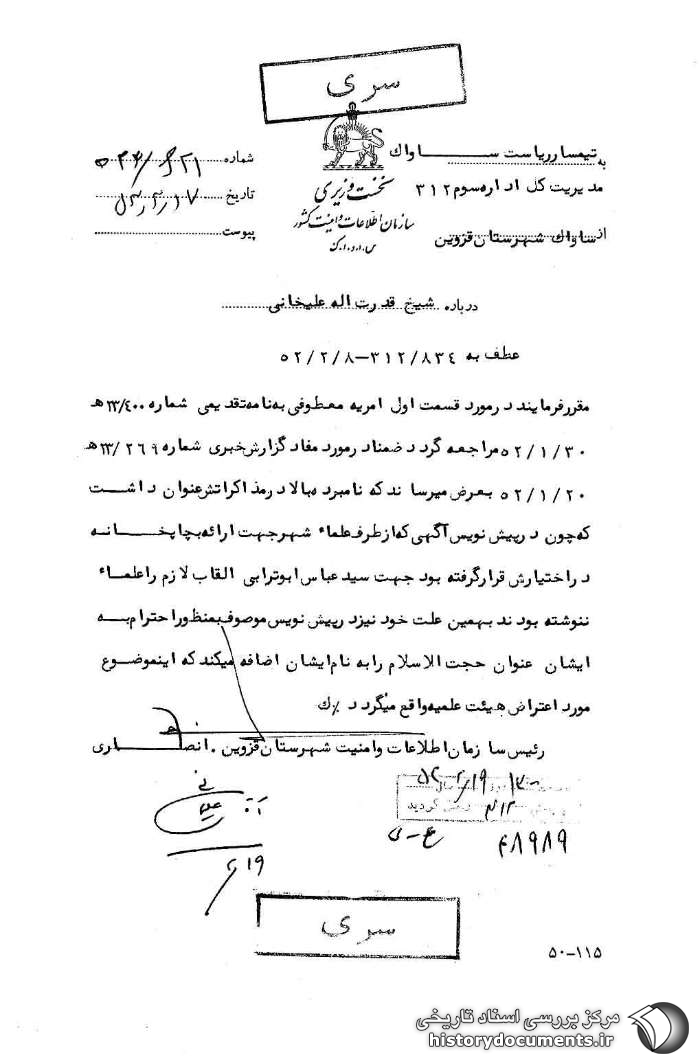 سری
به تیمسار ریاست ساواک
مدیریت کل اداره سوم ۳۱۲
از ساواک شهرستان قزوین
نخست وزیری
سازمان اطلاعات و امنیت کشور
س.ا.و.ا.ک
شماره
تاریخ
پیوست
درباره شیخ قدرت اله علیخانی
عطف به ۳۱۲/۸۳۴-۵۲/۲/۸
مقرر فرمایند در مورد قسمت اول امریه معطوفی به نامه تقدیمی شماره ۱۳/۴۰۰ هـ
۵۲/۱/۳۰ مراجعه گردد ضمنا در مورد مفاد گزارش خبری شماره ۱۳/۲۶۹ هـ
۵۲/۱/۲۰ بعرض میرساند که نامبرده بالا در مذاکراتش عنوان داشت
که چون در پیش نویس آگهی که از طرف علماء شهر جهت ارائه بچاپخانه
در اختیارش قرار گرفته بود جهت سید عباس ابوترابی القاب لازم را علماء
ننوشته بودند بهمین علت خود نیز در پیش نویس موصوف بمنظور احترام به
ایشان عنوان حجت الاسلام را به نام ایشان اضافه میکند که اینموضوع
مورد اعتراض هیئت علمیه واقع میگردد ک
رئیس سازمان اطلاعات و امنیت شهرستان قزوین . انصاری
۴۸۹۸۹
۱۹
سری
۵۰-۱۱۵
مرکز بررسی اسناد تاریخی
historydocuments.ir